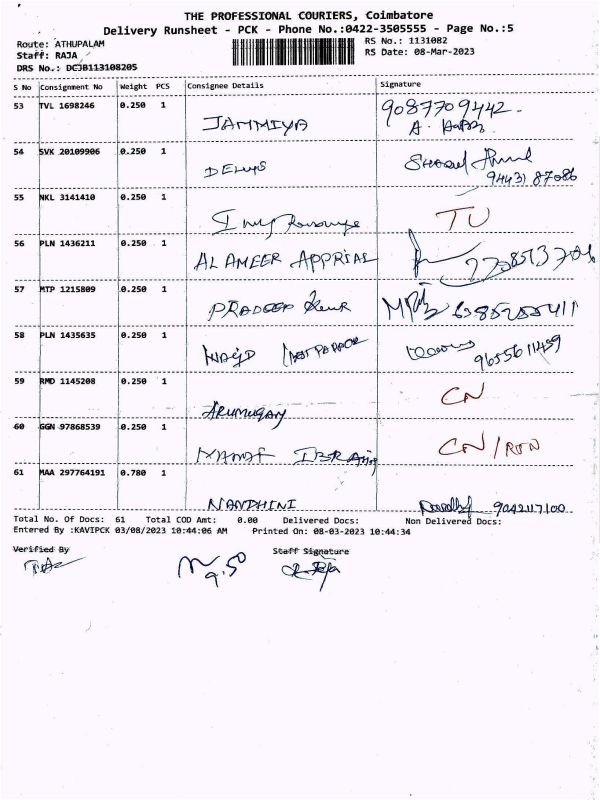 THE PROFESSIONAL COURIERS, Coimbatore
Delivery Runsheet - PCK - Phone No.:0422-3505555 - Page No.:5
Route: ATHUPALAM
Staff: RAJA
DRS No.: DCJB113108205
RS No.: 1131082
RS Date: 08-Mar-2023
S No Consignment No Weight PCS Consignee Details Signature
53 TVL 1698246 0.250 1
JAMMIYA 9087709442
54 SVK 20109906 0.250 1
9443187086
55 NKL 3141410 0.250 1
TU
56 PLN 1436211 0.250 1
AL AMEER APPRIAL
57 MTP 1215809 0.250 1
PRADEEP
58 PLN 1435635 0.250 1
MAJID 9655611459
59 RMD 1145208 0.250 1
ARUMUGAM CN
60 GGN 97868539 0.250 1
CN/RTN
61 MAA 297764191 0.780 1
NANDHINI 9042117100
Total No. Of Docs: 61 Total COD Amt: 0.00 Delivered Docs: Non Delivered Docs:
Entered By :KAVIPCK 03/08/2023 10:44:06 AM Printed On: 08-03-2023 10:44:34
Verified By
Staff Signature
9.50